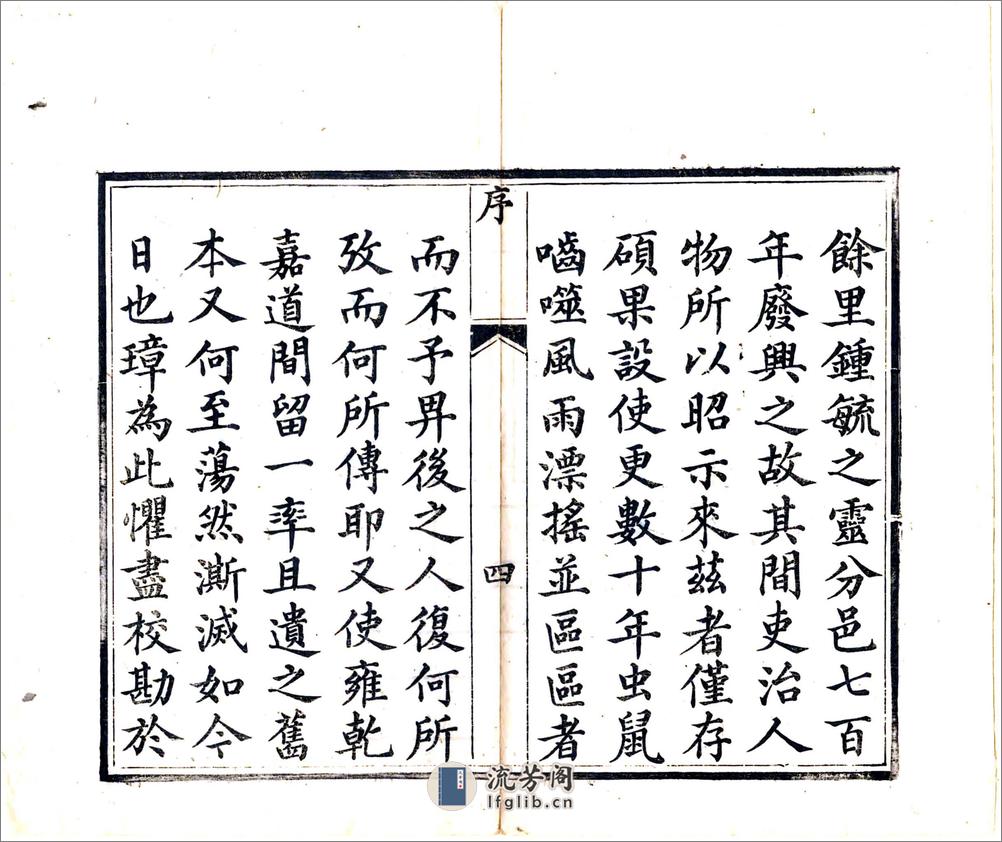 餘里鍾毓之靈分邑七百
年廢興之故其間吏治人
物所以昭示來茲者僅存
碩果設使更數十年虫鼠
嚙噬風雨漂搖並區區者
序
四
而不予畀後之人復何所
攷而何所傳耶又使雍乾
嘉道間留一率且遺之舊
本又何至蕩然澌滅如今
日也璋為此懼盡校勘於
流芳阁
lfglib.cn